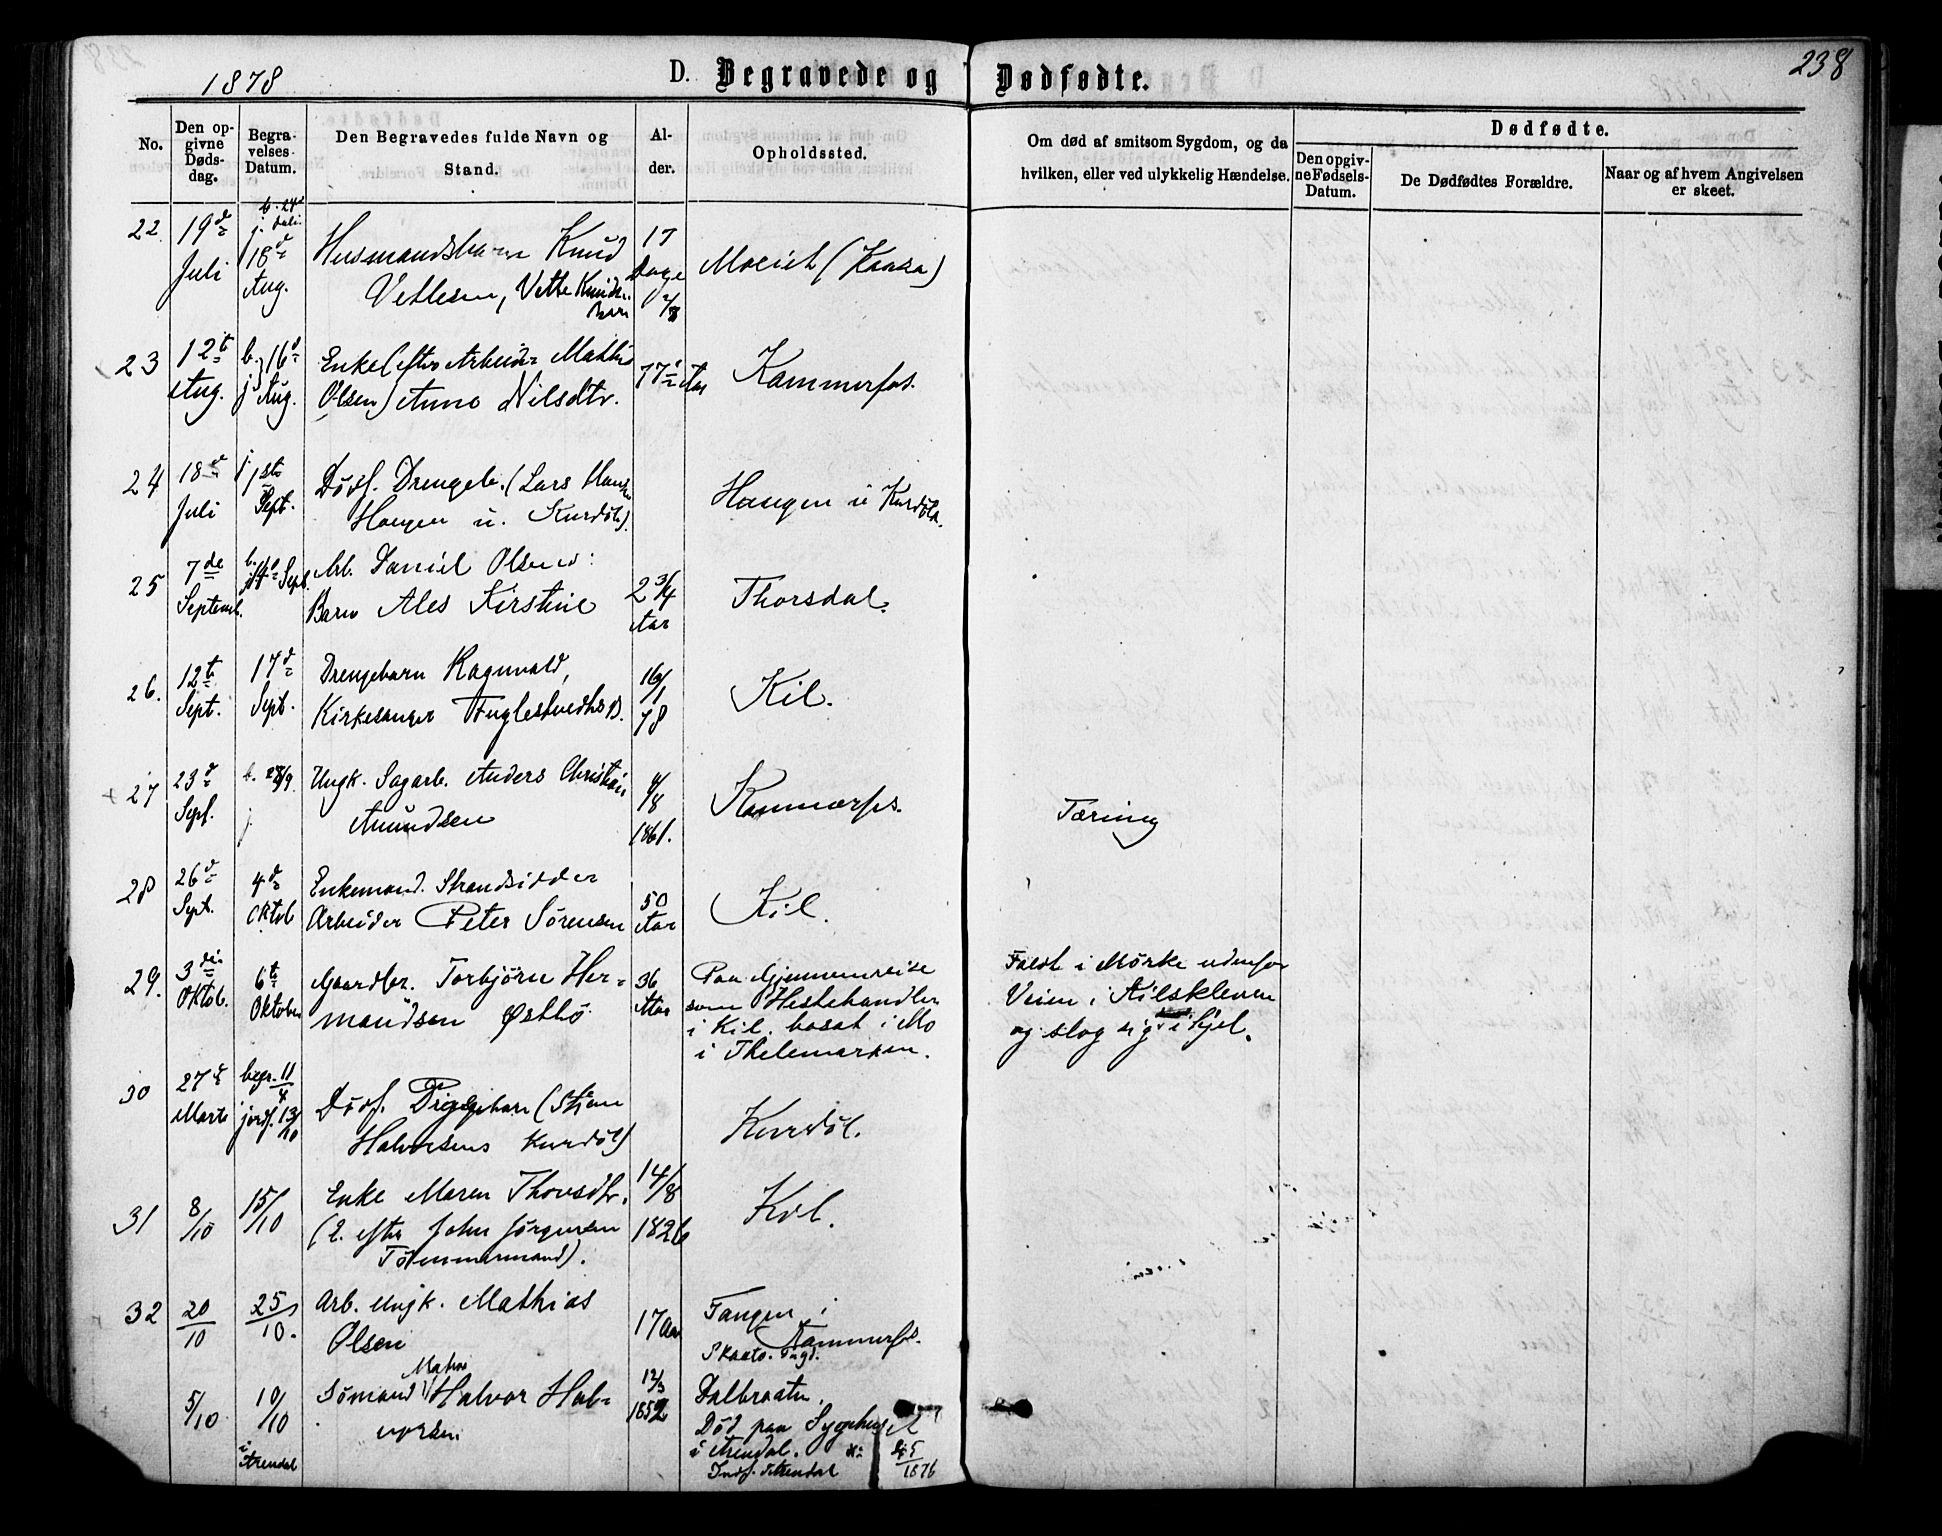 1878 D. Begravede og Dødfødte. 238
No.
Den op-
givne
Døds-
dag.
Begra-
velses-
Datum.
Den Begravedes fulde Navn og
Stand.
Al-
der.
Opholdssted.
Om død af smitsom Sygdom, og da
hvilken, eller ved ulykkelig Hændelse.
Dødfødte.
Den opgiv-
ne Fødsels-
Datum.
De Dødfødtes Forældre.
Naar og af hvem Angivelsen
er skeet.
22. 19de
Juli
18de
Aug.
Husmandsbarn Knud
Vetlesen,
17
Dage
23 12te
Aug.
b. j. 16de
Aug.
Enke (efter Arbeider Mathis
Olsen) Anne Nilsdtr.
77½ Aar
Kammerfos.
24 18de
Juli
j. 1ste
Sept.
Dødf. Drengeb. (Lars
Haugen u. Kurdøl).
Haugen u Kurdøl.
25 7de
Septemb.
Arb. Daniel Olsens
Barn Ales Kirstine
2 3/4
Aar
Thorsdal.
26. 12te
Sept.
17de
Sept.
Drengebarn Ragnvald,
Kirkesanger Fuglestvedts B.
16/1
78
Kil.
27 23de
Sept.
b. 28/9
j.
Ungk. Sagarb. Anders Christian
Amundsen
/8
1861.
Kammerfos.
Tæring
28 26de
Sept.
4de
Oktob
Enkemand. Strandsidder
Arbeider Peter Sørensen
50
Aar
Kil.
29. 3die
Oktob.
6te
Oktober
Gaardbr. Torbjørn Her-
mundsen Østbø
36
Aar
Paa Gjennemreise
som Hestehandler
i Kil, bosat i Mo
i Thelemarken.
Faldt i Mørke udenfor
Veien i Kilskleven
og slog sig ihjel.
30 27de
Marts
begr. 11/4
jordf. 13/10
Dødf. Pigebarn (Stian
Halvorsens Kurdøl)
Kurdøl.
31 8/10
15/10
Enke Maren Thorsdtr.
(E. efter John Jørgensen
Tømmermand).
14/8
1826
Kil.
32 20/10
25/10.
Arb. Ungk. Mathias
Olsen
17 Aar
Tangen i
Kammerfos.
Skaatø. Sogn.
5/10
10/10
i Arendal
Sømand Halvor Hal-
vorsen
12/3
1852
Dalbraaten.
Død paa Sygehuset
i Arendal.
Indf. Arendal
1876